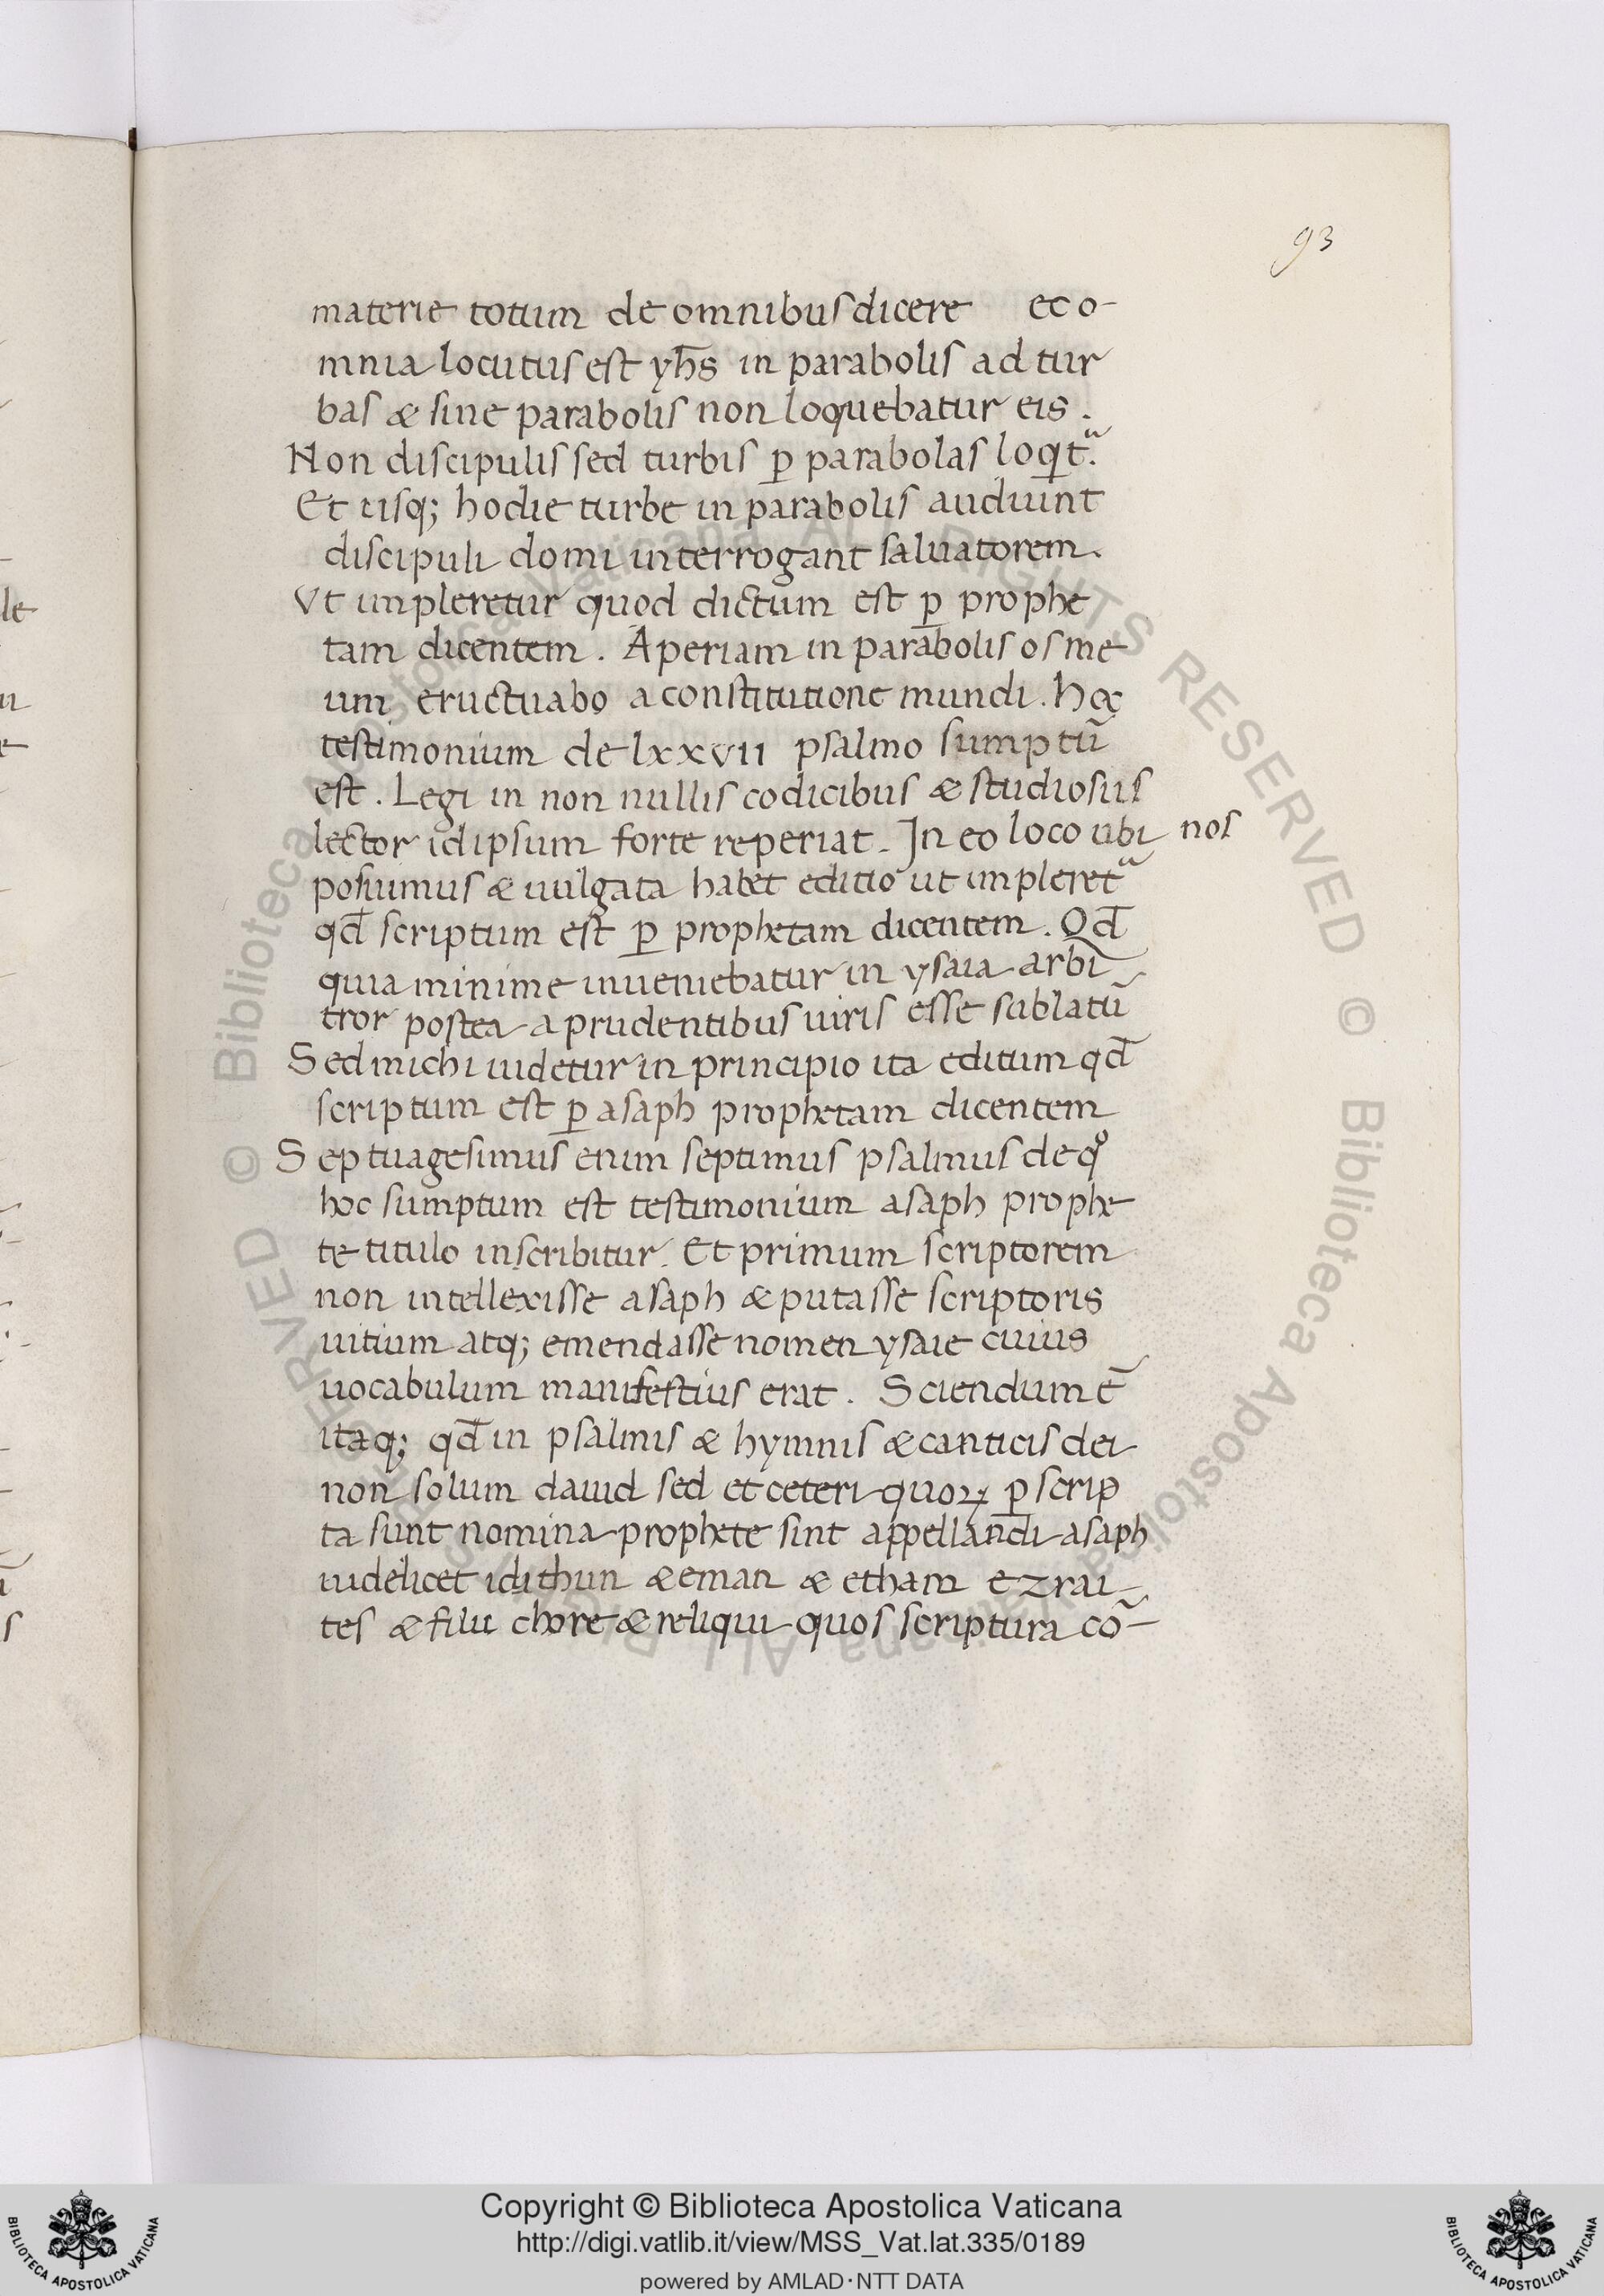 93
materie totum de omnibus dicere ec o-
mnia locutus est yh̅s in parabolis ad tur
bas & sine parabolis non loquebatur eis.
Non discipulis sed turbis ꝑ parabolas loqᷓt.
Et usq; hodie turbe in parabolis audiunt
discipuli domi interrogant saluatorem.
Vt impleretur quod dictum est ꝑ prophe
tam dicentem. Aperiam in parabolis os me
um eructuabo a constitutione mundi. hoc
testimonium de lxxvii psalmo sumptū
est. Legi in non nullis codicibus & studiosus
lector idipsum forte reperiat. In eo loco ubi nos
posuimus & uulgata habet editio ut impleretᷓ
qd̅ scriptum est ꝑ prophetam dicentem. Qd̅
quia minime inueniebatur in ysaia arbi
tror postea a prudentibus uiris esse sublatū
Sed michi uidetur in principio ita editum qd̅
scriptum est ꝑ asaph prophetam dicentem
Septuagesimus enim septimus psalmus de qͦ
hoc sumptum est testimonium asaph prophe
te titulo inscribitur. Et primum scriptorem
non intellexisse asaph & putasse scriptoris
uitium atq; emendasse nomen ysaie cuius
uocabulum manifestius erat. Sciendum ē
itaq; qd̅ in psalmis & hymnis & canticis dei
non solum dauid sed et ceteri quoꝝ ꝑscrip
ta sunt nomina prophete sint appellandi asaph
uidelicet idithun & eman & etham ezrai-
tes & filii chore & reliqui quos scriptura cō-
© Biblioteca Apostolica Vaticana ALL RIGHTS RESERVED © Biblioteca Apostolica Vaticana ALL RIGHTS RESERVED
Copyright © Biblioteca Apostolica Vaticana
http://digi.vatlib.it/view/MSS_Vat.lat.335/0189
powered by AMLAD·NTT DATA
BIBLIOTECA APOSTOLICA VATICANA
BIBLIOTECA APOSTOLICA VATICANA